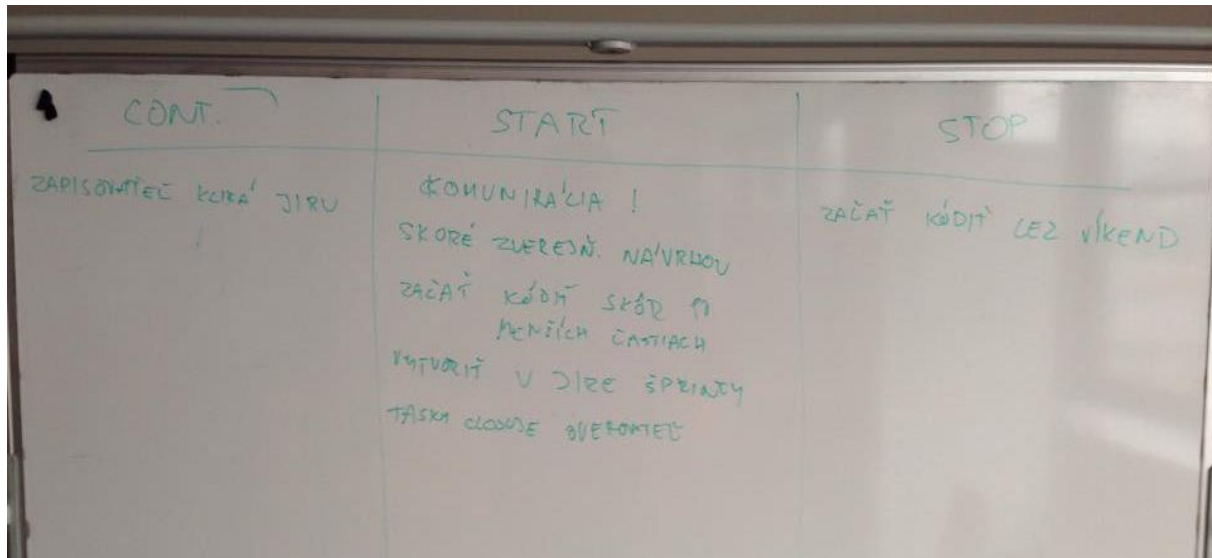 CONT.
START
STOP
ZAPISOVATEĽ KLIKÁ JIRU
!
KOMUNIKÁCIA !
SKORÉ ZVEREJŇ. NÁVRHOV
ZAČAŤ KÓDIŤ SKÔR
MENŠÍCH ČASTIACH
VYTVORIŤ V JIRE ŠPRINTY
TASKY CLOSUJE OVEROVATEĽ
ZAČAŤ KÓDIŤ CEZ VÍKEND